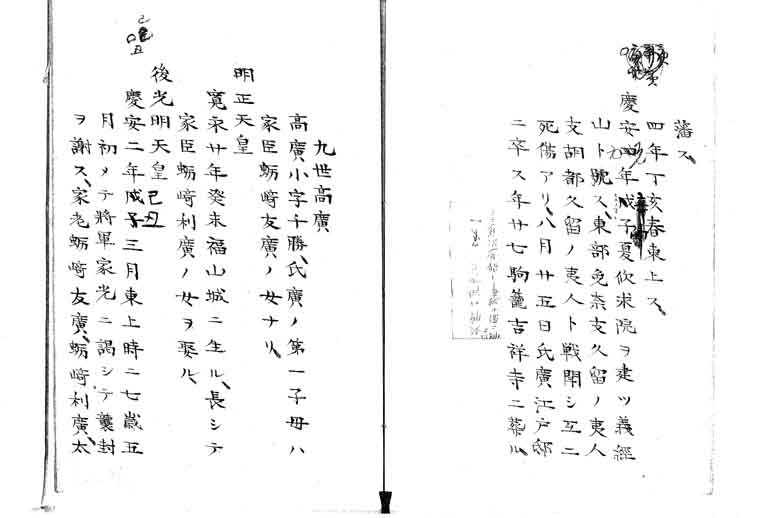 藩ス、
四年丁亥春東上ス、
慶安元年戊子夏欣求院ヲ建ツ義經
山ト號ス、東部免奈支久留ノ夷人
支胡都久留ノ夷人ト戦鬪シ互ニ
死傷アリ、八月廿五日氏廣江戸邸
ニ卒ス年廿七駒籠吉祥寺ニ葬ル、
九世高廣
高廣小字千勝、氏廣ノ第一子母ハ
家臣蛎﨑友廣ノ女ナリ、
明正天皇
寛永廿年癸未福山城ニ生ル、長シテ
家臣蛎﨑利廣ノ女ヲ娶ル、
後光明天皇
慶安二年己丑三月東上時ニ七歳五
月初メテ將軍家光ニ謁シテ襲封
ヲ謝ス、家老蛎﨑友廣、蛎﨑利廣、太